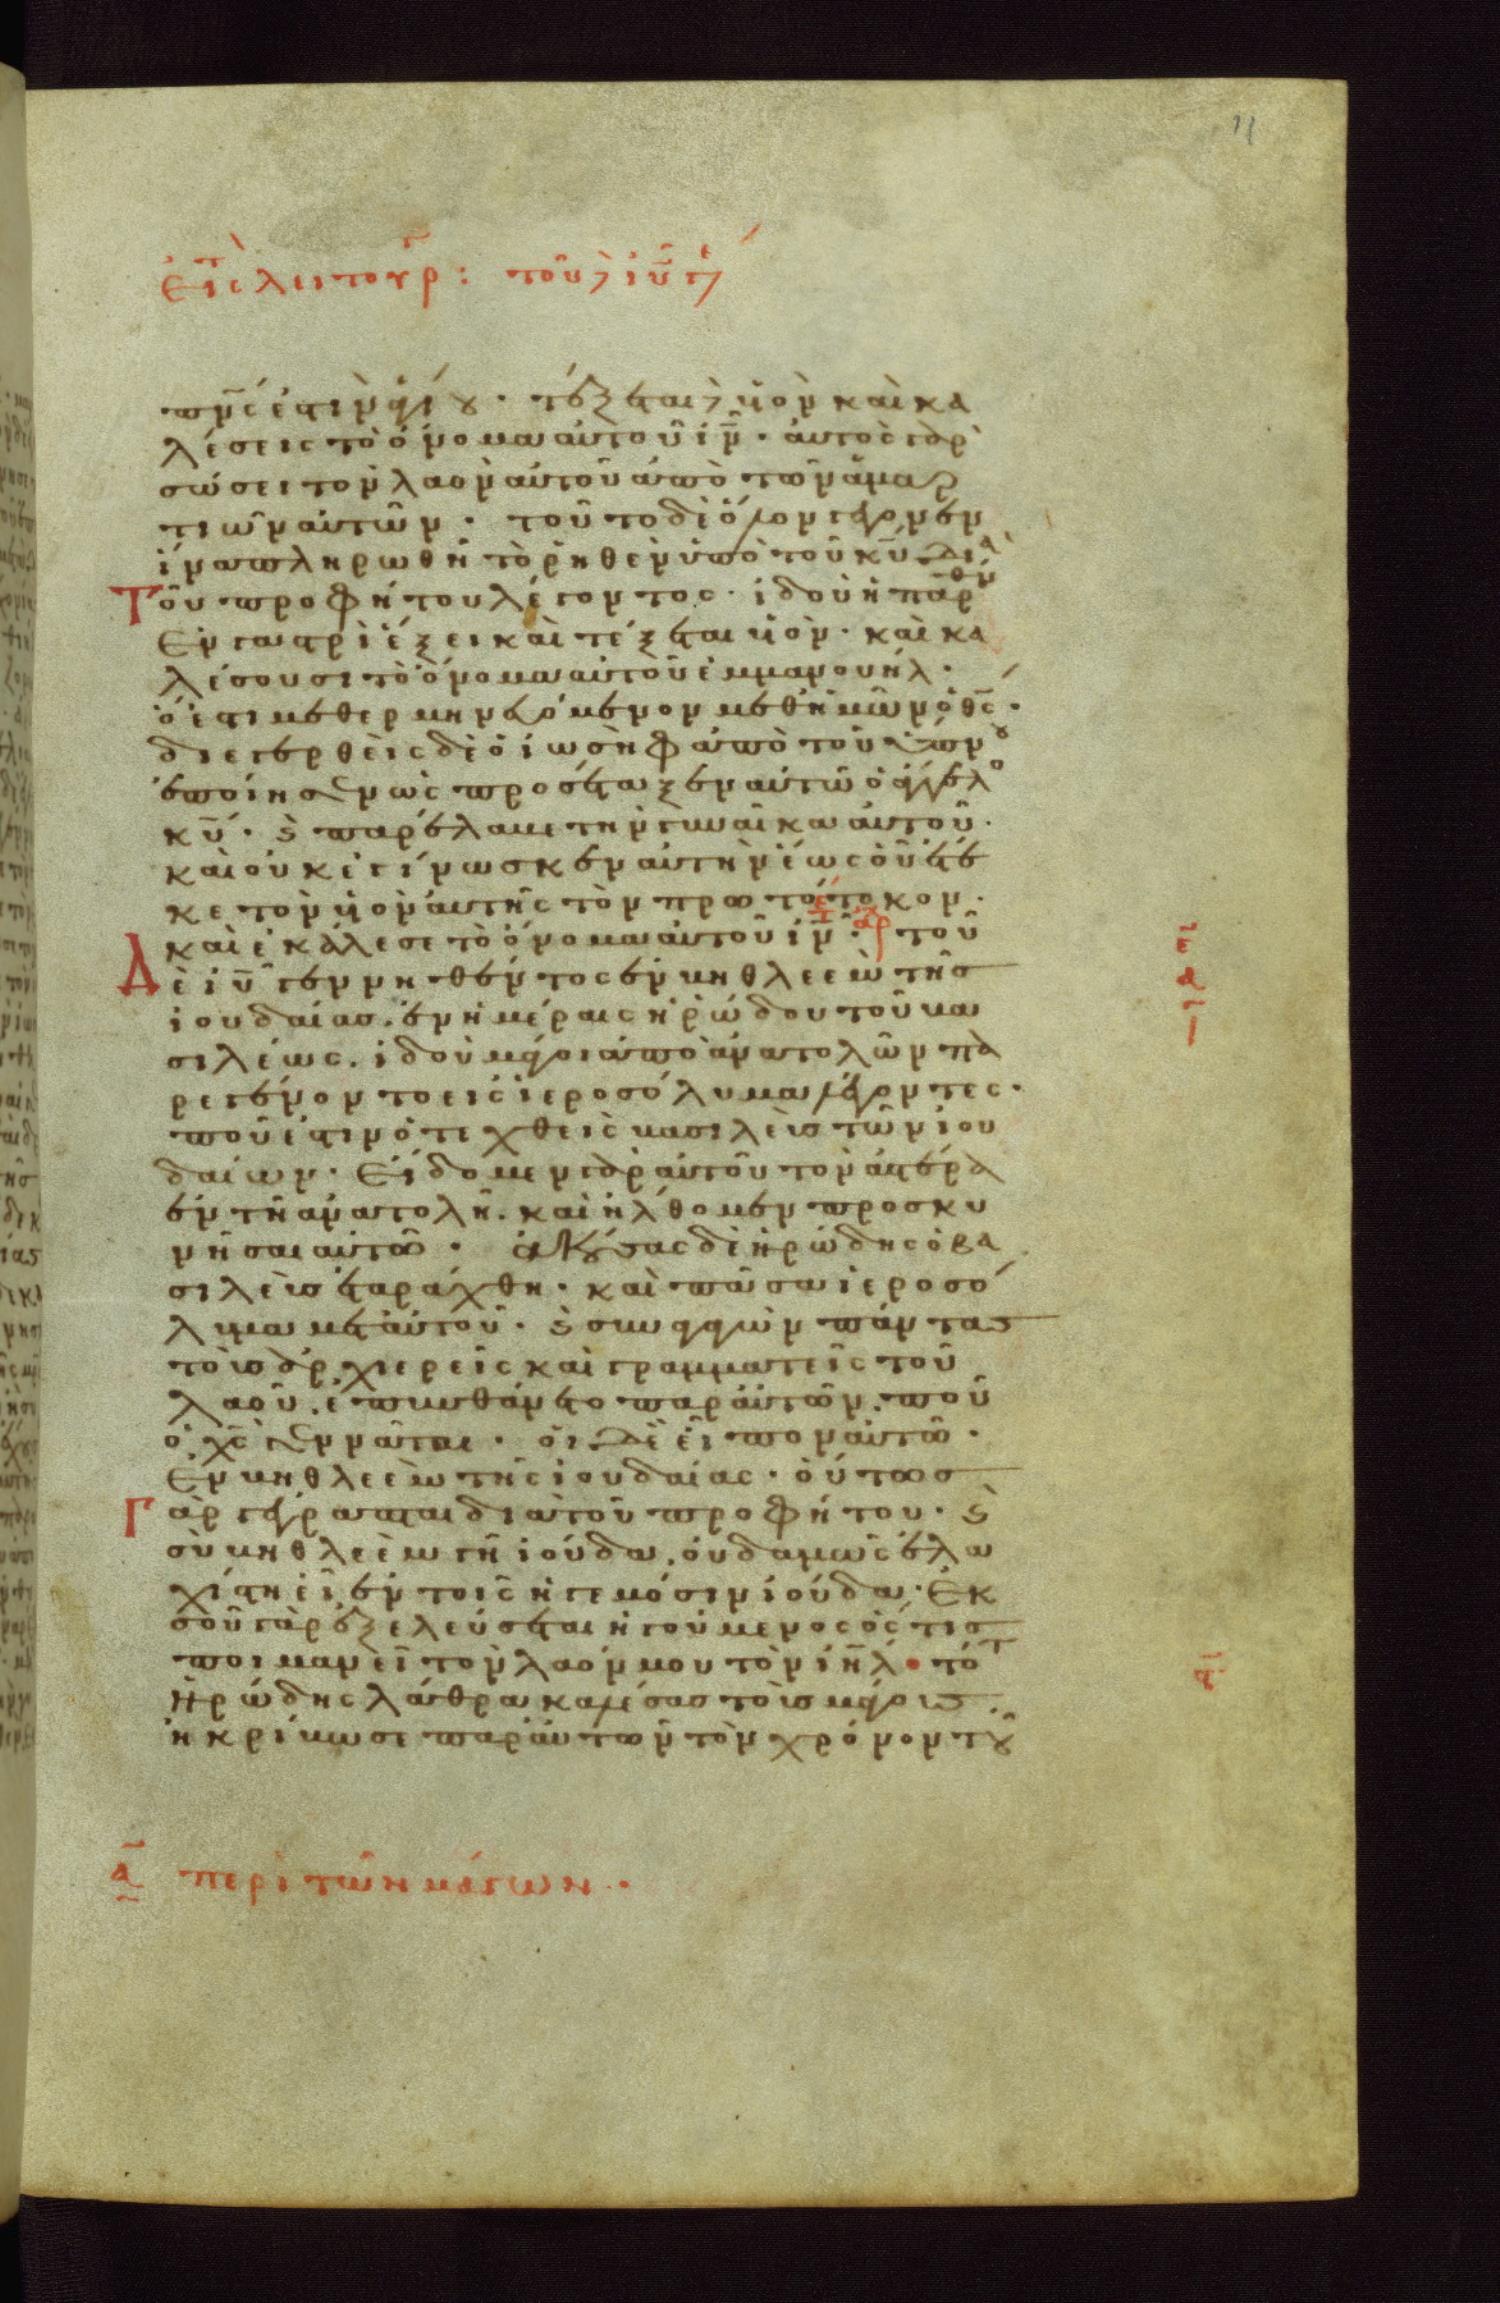 εἰς λειτουρ: τοῦ ιυ
πνς ἐστιν ἁγίου · τέξεται δὲ υἱὸν καὶ κα
λέσεις τὸ ὄνομα αὐτοῦ ιν · αὐτὸς γὰρ
σώσει τὸν λαὸν αὐτοῦ ἀπὸ τῶν ἁμαρ
τιῶν αὐτῶν · τοῦτο δὲ ὅλον γέγονεν
ἵνα πληρωθῆ τὸ ῥηθὲν ὑπὸ τοῦ κυ διὰ
τοῦ προφήτου λέγοντος · ἰδοὺ ἡ παρθέν
ἐν γαστρὶ ἕξει καὶ τέξεται υἱὸν · καὶ κα
λέσουσι τὸ ὄνομα αὐτοῦ ἐμμανουήλ ·
ὅ ἐστι μεθερμηνευόμενον μεθ ἡμῶν ὁ θς ·
διεγερθεὶς δὲ ὁ ἰωσὴφ ἀπὸ τοῦ ὕπνου
ἐποίησεν ὡς προσέταξεν αὐτῶ ὁ ἄγγελο
κυ · καὶ παρέλαβε τὴν γυναῖκα αὐτοῦ ·
καὶ οὐκ ἐγίνωσκεν αὐτὴν ἕως οὗ ἔτε
κε τὸν υἱὸν αὐτῆς τὸν πρωτότοκον ·
καὶ ἐκάλεσε τὸ ὄνομα αὐτοῦ ιν · τοῦ
Δὲ ιυ γεννηθέντος ἐν βηθλεὲμ τῆς
ἰουδαίας · ἐν ἡμέραις ἡρώδου τοῦ βα
σιλέως · ἰδοὺ μάγοι ἀπὸ ἀνατολῶν πα
ρεγένοντο εἰς ἱεροσόλυμα λέγοντες ·
ποῦ ἐστιν ὁ τεχθεὶς βασιλεὺς τῶν ἰου
δαίων · εἴδομεν γὰρ αὐτοῦ τὸν ἀστέρα
ἐν τῆ ἀνατολῆ · καὶ ἤλθομεν προσκυ
νῆσαι αὐτῶ · ἀκούσας δὲ ἡρώδης ὁ βα
σιλεὺς ἐταράχθη · καὶ πᾶσα ἱεροσό
λυμα μετ αὐτοῦ · καὶ συναγαγὼν πάντας
τοὺς ἀρχιερεῖς καὶ γραμματεῖς τοῦ
λαοῦ · ἐπυνθάνετο παρ αὐτῶν · ποῦ
ὁ χς γεννᾶται · οἱ δὲ εἶπον αὐτῶ ·
ἐν βηθλεὲμ τῆς ἰουδαίας · οὕτως
Γὰρ γέγραπται διὰ τοῦ προφήτου · καὶ
σὺ βηθλεὲμ γῆ ἰούδα · οὐδαμῶς ἐλα
χίστη εἶ ἐν τοῖς ἡγεμόσιν ἰούδα · ἐκ
σοῦ γὰρ ἐξελεύσεται ἡγούμενος ὅστις
ποιμανεῖ τὸν λαόν μου τὸν ιηλ · τότ
ἡρώδης λάθρα καλέσας τοὺς μάγους ·
ἠκρίβωσε παρ αὐτῶν τὸν χρόνον τοῦ
α περὶ τῶν μάγων ·